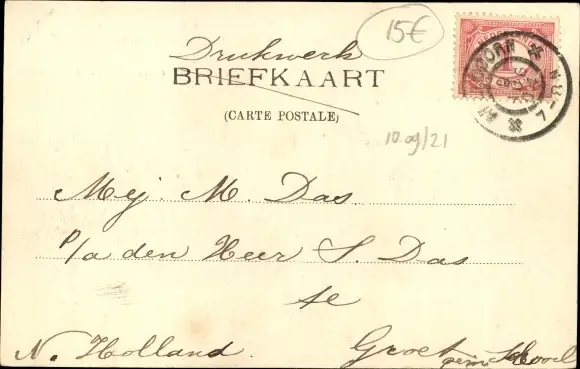 15€
Drukwerk
BRIEFKAART
(CARTE POSTALE)
10.09/21
Mej. M. Das.
p/a den Heer S. Das
te
N. Holland. Groet